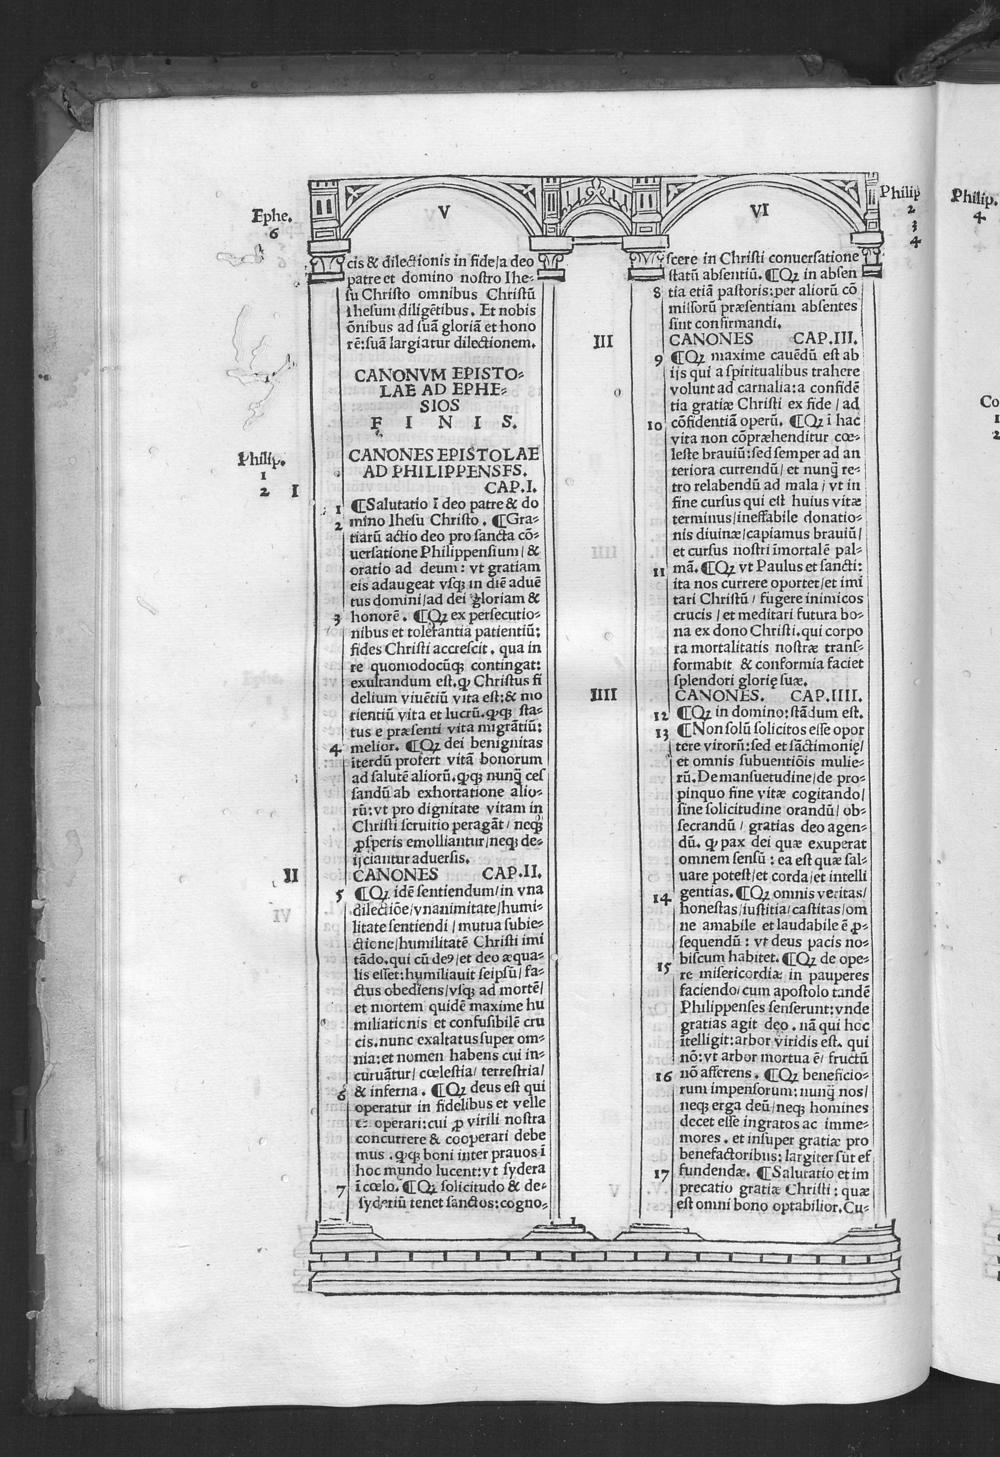 Ephe.
6
V
cis & dilectionis in fide/a deo
patre et domino nostro Ihe⸗
su Christo omnibus Christū
Ihesum diligētibus. Et nobis
ōnibus ad suā gloriā et hono
rē:suā largiatur dilectionem.
CANONVM EPISTO⸗
LAE AD EPHE⸗
SIOS
F I N I S.
Philip.
1
2
CANONES EPISTOLAE
AD PHILIPPENSES.
I CAP.I.
1 ¶Salutatio ī deo patre & do
2 mino Ihesu Christo. ¶Gra⸗
tiarū actio deo pro sancta cō⸗
uersatione Philippensium/ &
oratio ad deum: vt gratiam
eis adaugeat vsqꝫ in diē aduē
tus domini/ad dei gloriam &
3 honorē. ¶Qꝫ ex persecutio⸗
nibus et tolerantia patientiū:
fides Christi accrescit. qua in
re quomodocūqꝫ contingat:
exultandum est.ꝙ Christus fi
delium viuētiū vita est:& mo
rientiū vita et lucrū.ꝙqꝫ sta⸗
tus e præsenti vita migrātiū:
4 melior. ¶Qꝫ dei benignitas
iterdū profert vitā bonorum
ad salutē aliorū.ꝙqꝫ nunq̄ ces
sandū ab exhortatione alio⸗
rū:vt pro dignitate vitam in
Christi seruitio peragāt/ neqꝫ
ꝓsperis emolliantur/neqꝫ de⸗
ijciantur aduersis.
II CANONES CAP.II.
5 ¶Qꝫ idē sentiendum/in vna
dilectiōe/vnanimitate/humi⸗
litate sentiendi/ mutua subie⸗
ctione/humilitatē Christi imi
tādo.qui cū deꝰ/et deo æqua⸗
lis esset:humiliauit seipsū/ fa⸗
ctus obediens/vsqꝫ ad mortē/
et mortem quidē maxime hu
miliationis et confusibilē cru
cis.nunc exaltatus super om⸗
nia:et nomen habens cui in⸗
curuātur/ cœlestia/ terrestria/
6 & inferna. ¶Qꝫ deus est qui
operatur in fidelibus et velle
& operari:cui ꝓ virili nostra
concurrere & cooperari debe
mus.ꝙqꝫ boni inter prauos ī
hoc mundo lucent:vt sydera
7 ī cœlo. ¶Qꝫ solicitudo & de⸗
syderiū tenet sanctos:cogno⸗
VI
Philip
2
3
4
scere in Christi conuersatione
statū absentiū. ¶Qꝫ in absen
8 tia etiā pastoris:per aliorū cō
missorū præsentiam absentes
sint confirmandi.
III CANONES CAP.III.
9 ¶Qꝫ maxime cauēdū est ab
ijs qui a spiritualibus trahere
volunt ad carnalia:a confidē
tia gratiæ Christi ex fide/ ad
10 cōfidentiā operū. ¶Qꝫ ī hac
vita non cōpræhenditur cœ⸗
leste brauiū:sed semper ad an
teriora currendū/ et nunq̄ re⸗
tro relabendū ad mala/ vt in
fine cursus qui est huius vitæ
terminus/ineffabile donatio⸗
nis diuinæ/capiamus brauiū/
et cursus nostri īmortalē pal⸗
11 mā. ¶Qꝫ vt Paulus et sancti:
ita nos currere oportet/et imi
tari Christū/ fugere inimicos
crucis/ et meditari futura bo⸗
na ex dono Christi.qui corpo
ra mortalitatis nostræ trans⸗
formabit & conformia faciet
splendori glorię suæ.
IIII CANONES. CAP.IIII.
12 ¶Qꝫ in domino:stādum est.
13 ¶Non solū solicitos esse opor
tere virorū:sed et sāctimonię/
et omnis subuentiōis mulie⸗
rū.De mansuetudine/de pro⸗
pinquo fine vitæ cogitando/
sine solicitudine orandū/ ob⸗
secrandū/ gratias deo agen⸗
dū. ꝙ pax dei quæ exuperat
omnem sensū: ea est quæ sal⸗
uare potest/et corda/et intelli
14 gentias. ¶Qꝫ omnis veritas/
honestas/iustitia/castitas/om
ne amabile et laudabile ē ꝓ⸗
sequendū: vt deus pacis no⸗
15 biscum habitet. ¶Qꝫ de ope⸗
re misericordiæ in pauperes
faciendo/cum apostolo tandē
Philippenses senserunt:vnde
gratias agit deo. nā qui hoc
ītelligit:arbor viridis est. qui
nō:vt arbor mortua ē/ fructū
16 nō afferens. ¶Qꝫ beneficio⸗
rum impensorum:nunq̄ nos/
neqꝫ erga deū/neqꝫ homines
decet esse ingratos ac imme⸗
mores. et insuper gratiæ pro
benefactoribus:largiter sūt ef
17 fundendæ. ¶Salutatio et im
precatio gratiæ Christi: quæ
est omni bono optabilior.Cu⸗
Philip.
4
Co
1
2